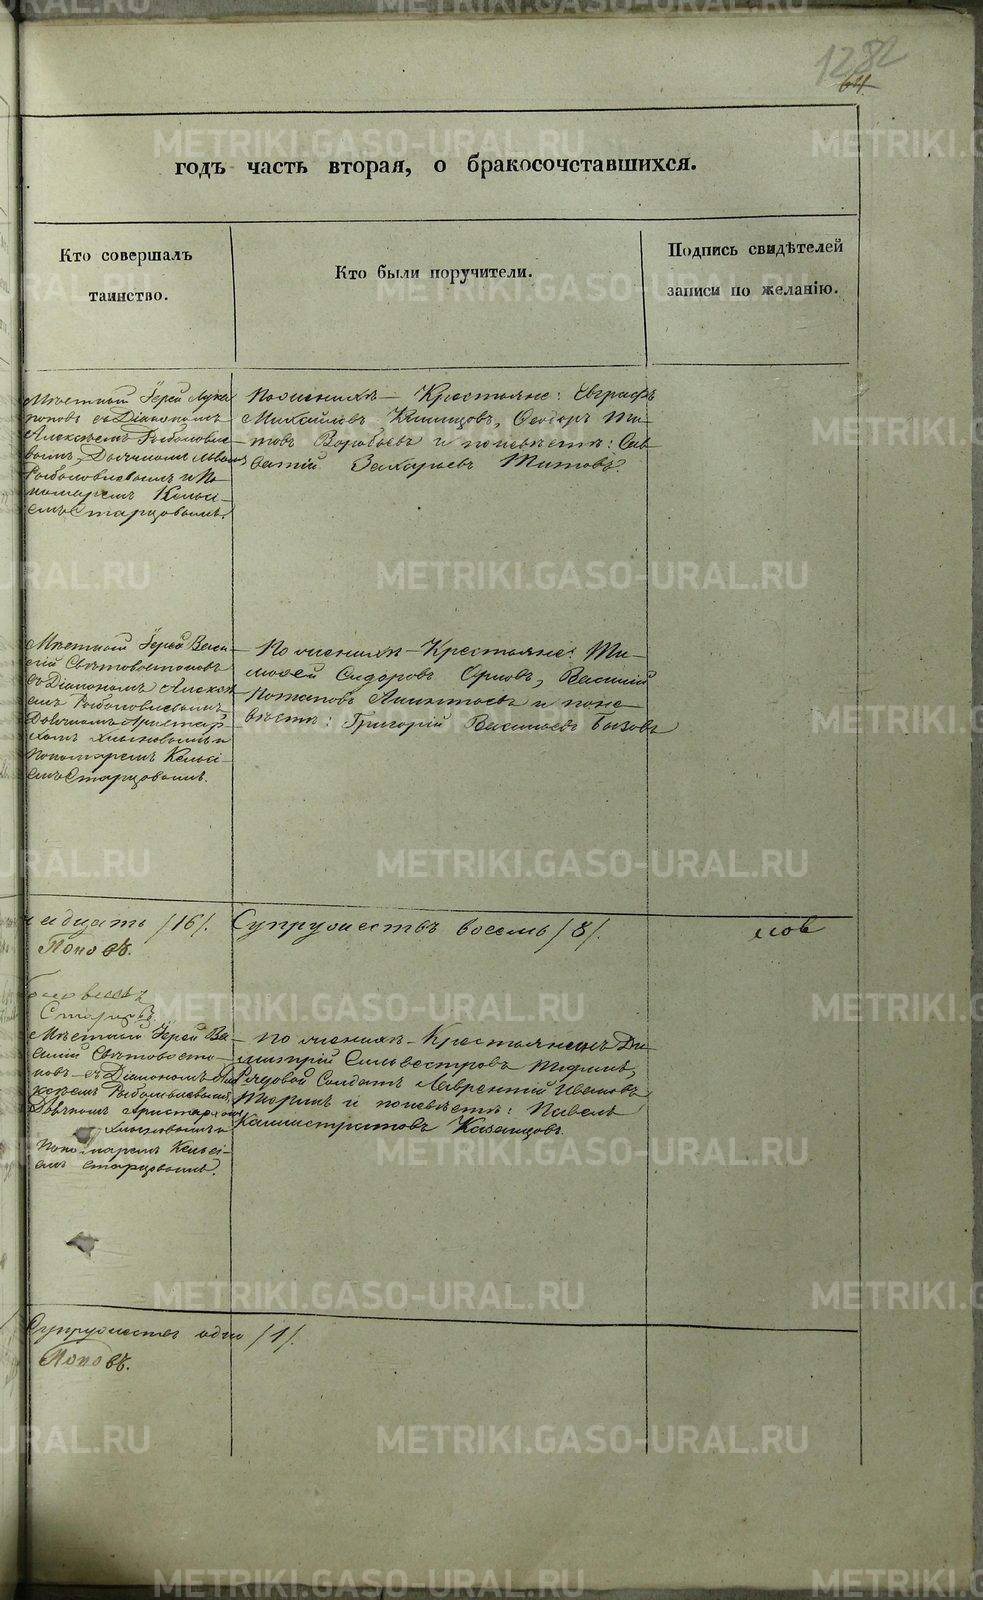 1282
64
годъ часть вторая, о бракосочетавшихся.
Кто совершалъ
таинство.
Кто были поручители.
Подпись свидѣтелей
записи по желанію.
Мѣстный Іерей Лука
Поповъ съ Діакономъ
Алексѣемъ Рыболовле-
вымъ, Дьячкомъ Львомъ
Рыболовлевымъ и По-
номаремъ Кельсі-
емъ Старцовымъ.
По женихѣ — Крестьяне: Евграфъ
Михайловъ Феодоръ Ти-
товъ Воробьевъ и по невѣстѣ: Сав-
ватій Захарьевъ Титовъ.
Мѣстный Іерей Васи-
лій Свѣтовостоковъ
съ Діакономъ Алексѣ-
емъ Рыболовлевымъ
Дьячкомъ Аристар-
хомъ Хлыновымъ и
Пономаремъ Кельсі-
емъ Старцовымъ.
По женихѣ — Крестьяне: Ти-
моѳей Сидоровъ Василій
Потаповъ и по не-
вѣстѣ: Григорій Васильевъ Бызовъ
надцать /16/.
Супружествъ восемь /8/.
Поповъ.
Старцовъ.
Мѣстный Іерей Ва-
силій Свѣтовосто-
ковъ съ Діакономъ Але-
ксѣемъ Рыболовлевымъ,
Дьячкомъ Аристархомъ
Хлыновымъ и
Пономаремъ Кельсі-
емъ Старцовымъ.
По женихѣ — Крестьянинъ Ди-
митрій Сильвестровъ
Рядовой Солдатъ Лаврентій Ивановъ
и по невѣстѣ: Павелъ
Каллистратовъ Казанцовъ.
Супружествъ одно /1/.
Поповъ.
METRIKI.GASO-URAL.RU